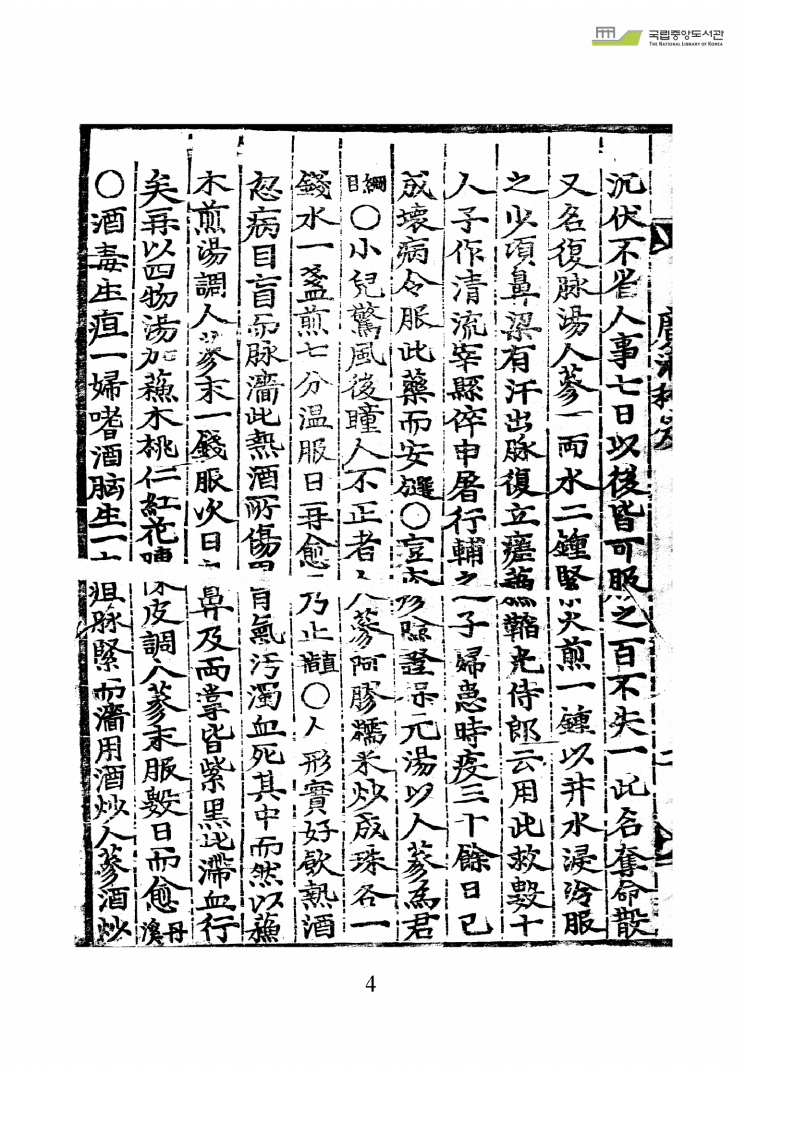 국립중앙도서관
THE NATIONAL LIBRARY OF KOREA
沉伏不省人事七日以後皆可服之百不失一此名奪命散
又名復脉湯人蔘一兩水二鍾緊火煎一鍾以井水浸冷服
之少頃鼻梁有汗出脉復立瘥蘇韜光侍郎云用此救數十
人予作清流宰縣倅申屠行輔之子婦患時疫三十餘日已
成壞病令服此藥而安選〇豆疹險證保元湯以人蔘爲君
綱目〇小兒驚風後瞳人不正者人蔘阿膠糯米炒成珠各一
錢水一盞煎七分温服日再愈乃止直〇人形實好飮熱酒
忽病目盲而脉濇此熱酒所傷胃氣汚濁血死其中而然以蘓
木煎湯調人蔘末一錢服次日鼻及兩掌皆紫黑此滯血行
矣再以四物湯加蘓木桃仁紅花陳皮調人蔘末服數日而愈丹溪
〇酒毒生疽一婦嗜酒胸生一疽脉緊而濇用酒炒人蔘酒炒
4